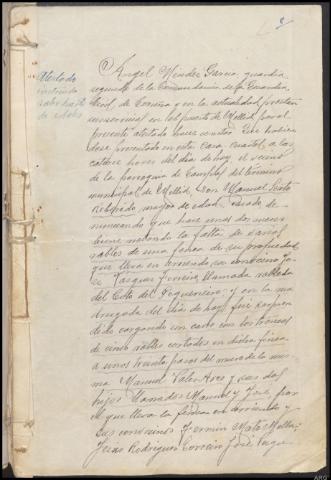 Atestado
instruido
sobre hurto
de robles
Angel Mendez Garcia, guardia
segundo de la Comandancia de la Guardia
Civil, de Coruña y en la actualidad prestan
su servicio en el puesto de Mellid, por el
presente atestado hace constar: Que habien
dose presentado en esta casa cuartel, a las
catorce horas del dia de hoy, el vecino
de la parroquia de Campos, del término
municipal de Mellid, Don Manuel Mato
Rebredo, mayor de edad, casado, de
nunciando que hace unos dos meses
biene notando la falta de varios
robles de una finca de su propiedad
que lleva en arriendo su convecino Jo
sé Vazquez Ferreiro, llamada robleda
del Coto del Pequeneiro; y en la ma
drugada del dia de hoy, fué sorpren
dido cargando un carro con los troncos
de cinco robles cortados en dicha finca
a unos treinta pasos del muro de la mis
ma Manuel Vales Ares y sus dos
hijos llamados Manuel y José, por
el que lleva la finca en arriendo y
sus convecinos Fermin Mato
Jesus Rodriguez José